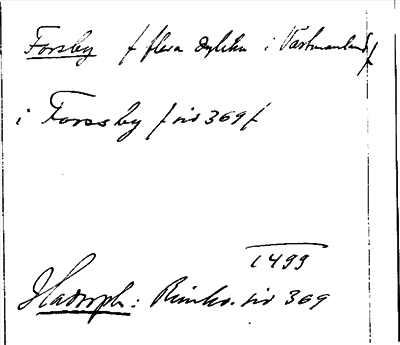 Forsby /flera dylika i Västmanland/
i Forssby /sid 369/
1499
Hadorph: Rimkr. sid 369